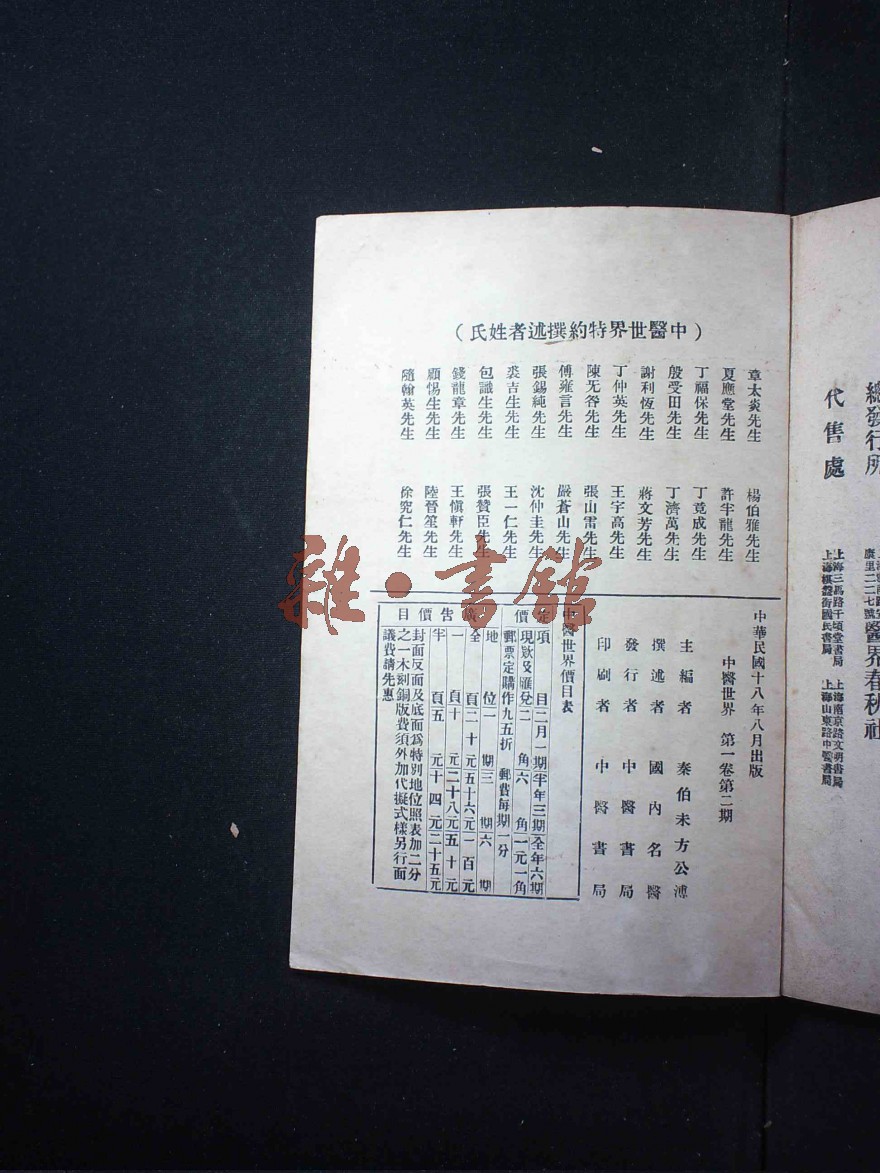 總發行所
醫界春秋社
代售處
上海三馬路千頃堂書局
上海棋盤街國民書局
上海南京路文明書局
上海山東路中醫書局
（中醫世界特約撰述者姓氏）
章太炎先生　楊伯雅先生
夏應堂先生　許半龍先生
丁福保先生　丁竟成先生
殷受田先生　丁濟萬先生
謝利恆先生　蔣文芳先生
丁仲英先生　王宇高先生
陳无咎先生　張山雷先生
傅雍言先生　嚴蒼山先生
張錫純先生　沈仲圭先生
裘吉生先生　王一仁先生
包識生先生　張贊臣先生
錢龍章先生　王愼軒先生
顧惕生先生　陸晉笙先生
隨翰英先生　徐究仁先生
中華民國十八年八月出版
中醫世界　第一卷第二期
主編者　秦伯未方公溥
撰述者　國內名醫
發行者　中醫書局
印刷者　中醫書局
中醫世界價目表
定價
項目　二月一期　半年三期　全年六期
現欵及匯兌　二角　六角　一元一角
郵票定購作九五折　郵費每期一分
廣告價目
地位　一期　三期　六期
全頁　二十元　五十六元　一百元
一頁　十元　二十八元　五十元
半頁　五元　十四元　二十五元
封面反面及底面爲特別地位照表加二分
之一木刻銅版費須外加代擬式樣另行面
議費請先惠
雜·書館